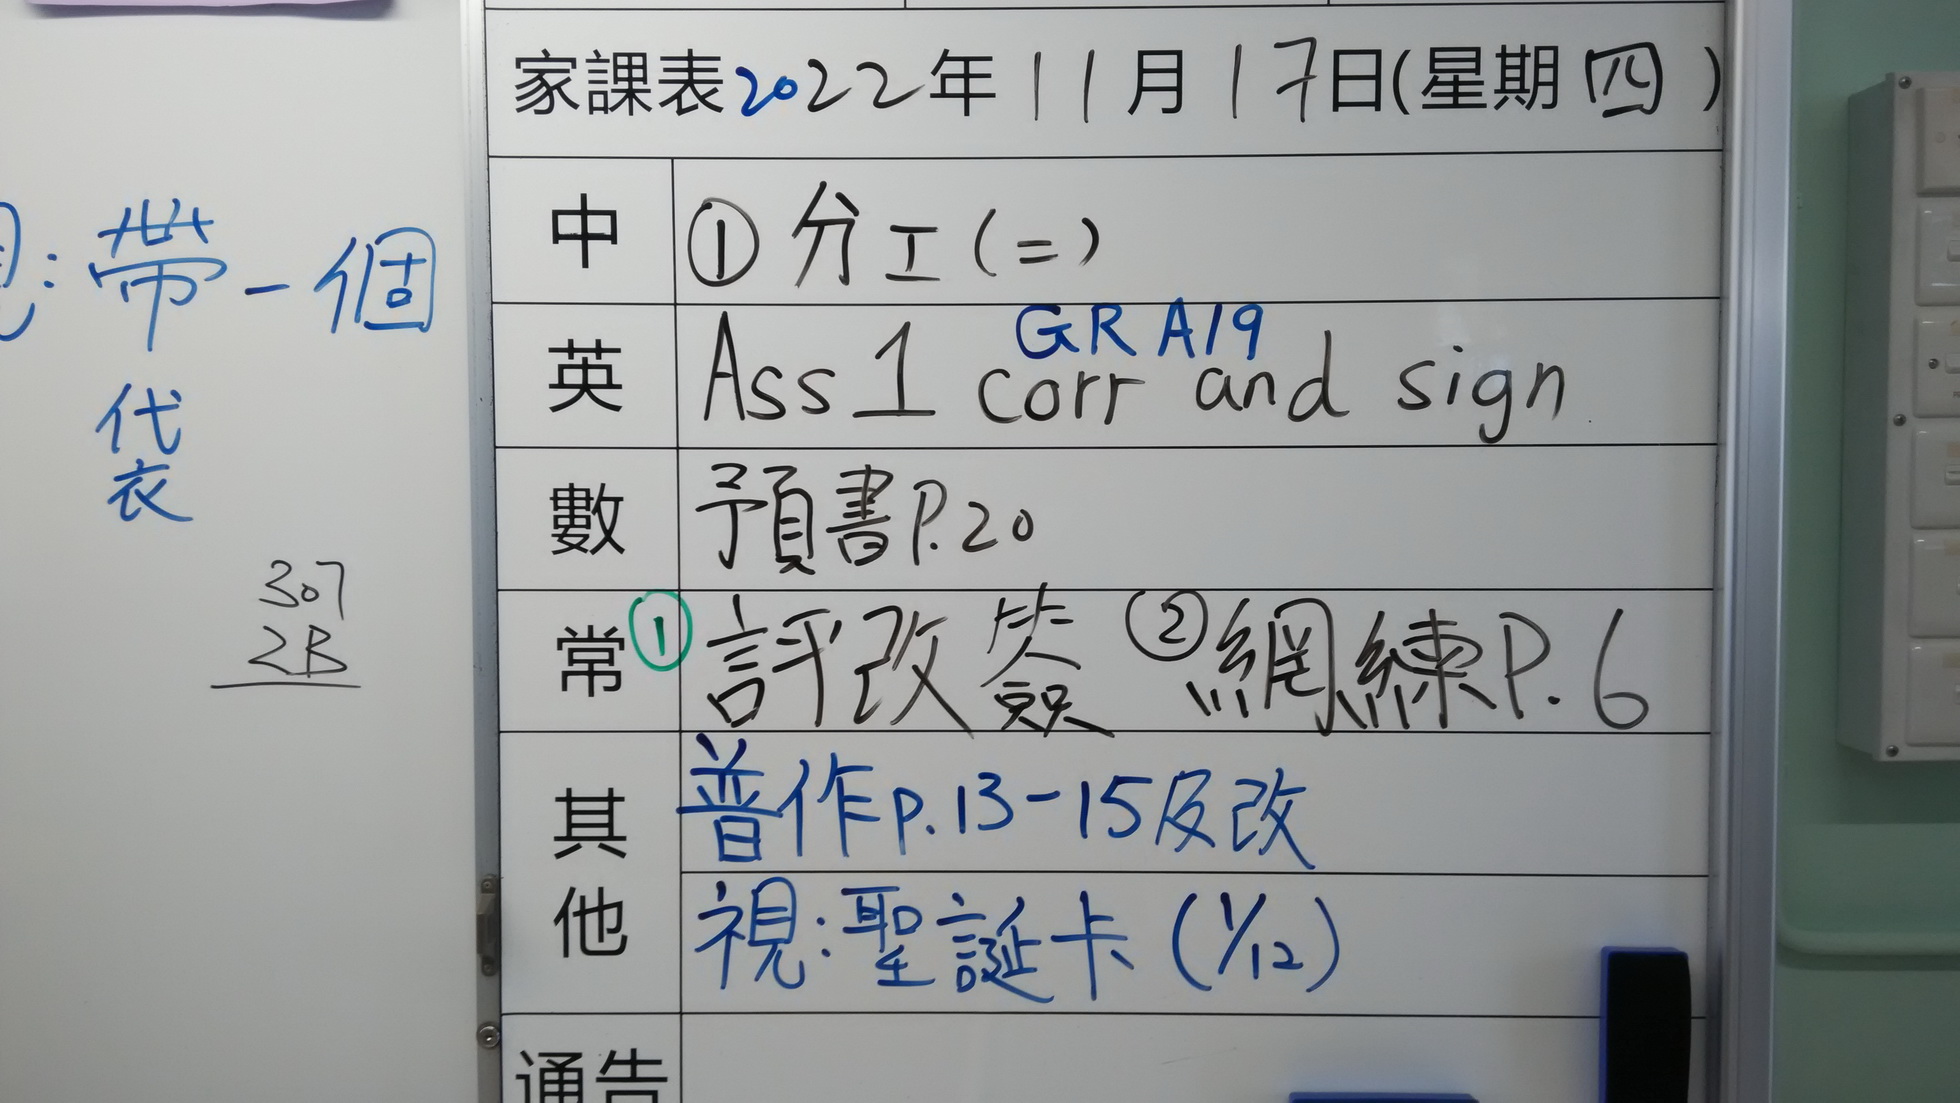 家課表2022年11月17日(星期四)
中 ①分工(二)
英 Ass 1 corr and sign
GR A19
數 預書P.20
常 ①評改簽 ②網練P.6
其他 普作p.13-15及改
視:聖誕卡(1/12)
通告
視:帶一個
代表
307
2B